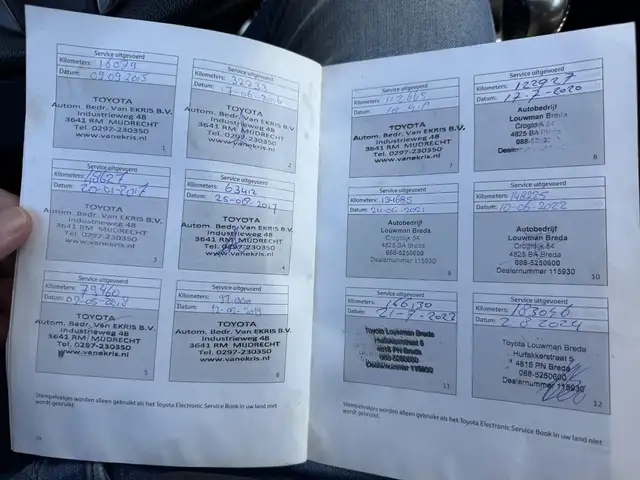 Service uitgevoerd
Kilometers: 16079
Datum: 09.09.2015
TOYOTA
Autom. Bedr. Van EKRIS B.V.
Industrieweg 48
3641 RM MIJDRECHT
Tel. 0297-230350
www.vanekris.nl
1
Service uitgevoerd
Kilometers: 32233
Datum: 17-06-2016
TOYOTA
Autom. Bedr. Van EKRIS B.V.
Industrieweg 48
3641 RM MIJDRECHT
Tel. 0297-230350
www.vanekris.nl
2
Service uitgevoerd
Kilometers: 48627
Datum: 20-01-2017
TOYOTA
Autom. Bedr. Van EKRIS B.V.
Industrieweg 48
3641 RM MIJDRECHT
Tel. 0297-230350
www.vanekris.nl
3
Service uitgevoerd
Kilometers: 63412
Datum: 25-08-2017
TOYOTA
Autom. Bedr. Van EKRIS B.V.
Industrieweg 48
3641 RM MIJDRECHT
Tel. 0297-230350
www.vanekris.nl
4
Service uitgevoerd
Kilometers: 79460
Datum: 02-05-2018
TOYOTA
Autom. Bedr. Van EKRIS B.V.
Industrieweg 48
3641 RM MIJDRECHT
Tel. 0297-230350
www.vanekris.nl
5
Service uitgevoerd
Kilometers: 97.000
Datum: 12-02-2019
TOYOTA
Autom. Bedr. Van EKRIS B.V.
Industrieweg 48
3641 RM MIJDRECHT
Tel. 0297-230350
www.vanekris.nl
6
Stempelvakjes worden alleen gebruikt als het Toyota Electronic Service Book in uw land niet
wordt gebruikt.
Service uitgevoerd
Kilometers: 112665
Datum:
TOYOTA
Autom. Bedr. Van EKRIS B.V.
Industrieweg 48
3641 RM MIJDRECHT
Tel. 0297-230350
www.vanekris.nl
7
Service uitgevoerd
Kilometers: 122927
Datum: 17-7-2020
Autobedrijf
Louwman Breda
Crogtdijk 54
4825 BA Breda
Dealernummer
8
Service uitgevoerd
Kilometers: 134685
Datum: 24-06-2021
Autobedrijf
Louwman Breda
Crogtdijk 54
4825 BA Breda
088-5250600
Dealernummer 115930
9
Service uitgevoerd
Kilometers: 148225
Datum: 10-06-2022
Autobedrijf
Louwman Breda
Crogtdijk 54
4825 BA Breda
088-5250600
Dealernummer 115930
10
Service uitgevoerd
Kilometers: 166130
Datum: 21-7-2023
Toyota Louwman Breda
Huifakkerstraat 5
4815 PN Breda
088-5250600
Dealernummer 115930
11
Service uitgevoerd
Kilometers: 183046
Datum: 2 8 2024
Toyota Louwman Breda
Huifakkerstraat 5
4815 PN Breda
088-5250600
Dealernummer 115930
12
Stempelvakjes worden alleen gebruikt als het Toyota Electronic Service Book in uw land niet
wordt gebruikt.